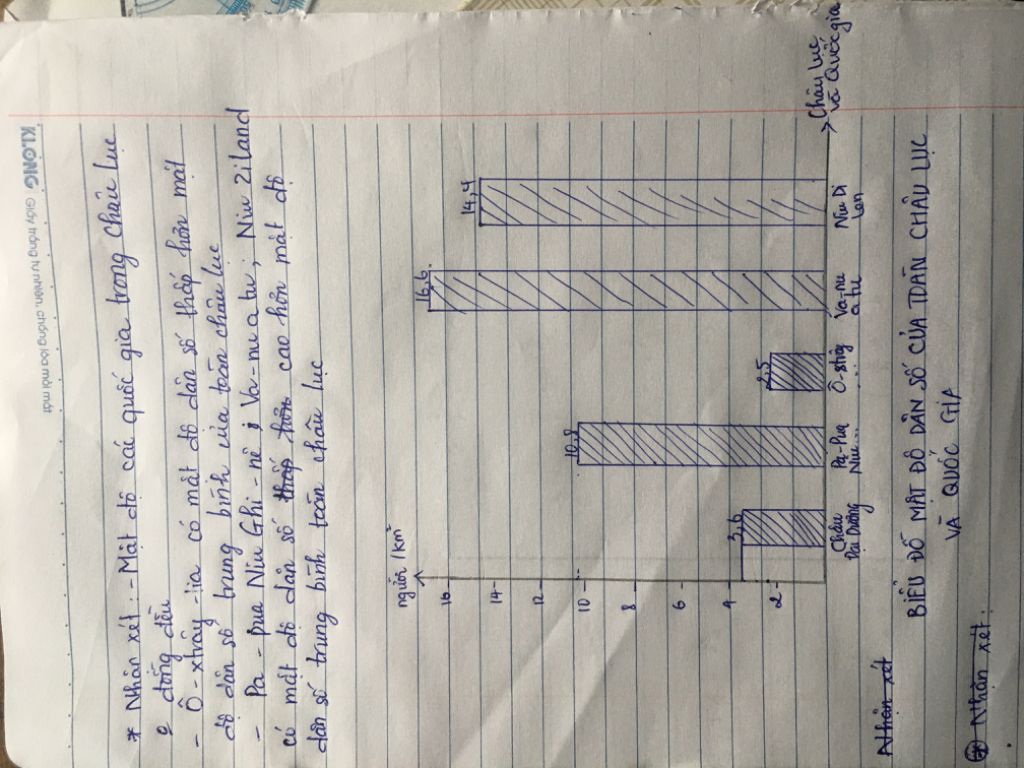 KLONG Giấy trắng tự nhiên, chống lóa mỏi mắt
* Nhận xét: - Mật độ các quốc gia trong châu lục
o đồng đều
- Ô-xtrây-lia có mật độ dân số thấp hơn mật
độ dân số trung bình của toàn châu lục
- Pa-pua Niu Ghi-nê; Va-nu a tu; Niu Ziland
có mật độ dân số thấp hơn cao hơn mật độ
dân số trung bình toàn châu lục
người/km²
16
14
12
10
8
6
4
2
3,6
10,8
2,5
16,6
14,4
Châu
Đại Dương
Pa-Pua
Niu...
Ô-xtrây
...
Va-nu
a tu
Niu Di
len
Châu lục
và Quốc gia
Nhận xét
BIỂU ĐỒ MẬT ĐỘ DÂN SỐ CỦA TOÀN CHÂU LỤC
VÀ QUỐC GIA
* Nhận xét: